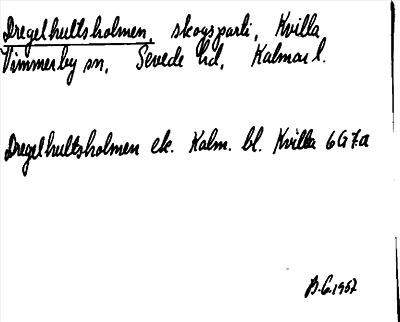 Dregelhultsholmen, skogsparti, Kvilla
Vimmerby sn, Sevede hd, Kalmar l.
Dregelhultsholmen ek. Kalm. bl. Kvilla 6G7a
B.G. 1957